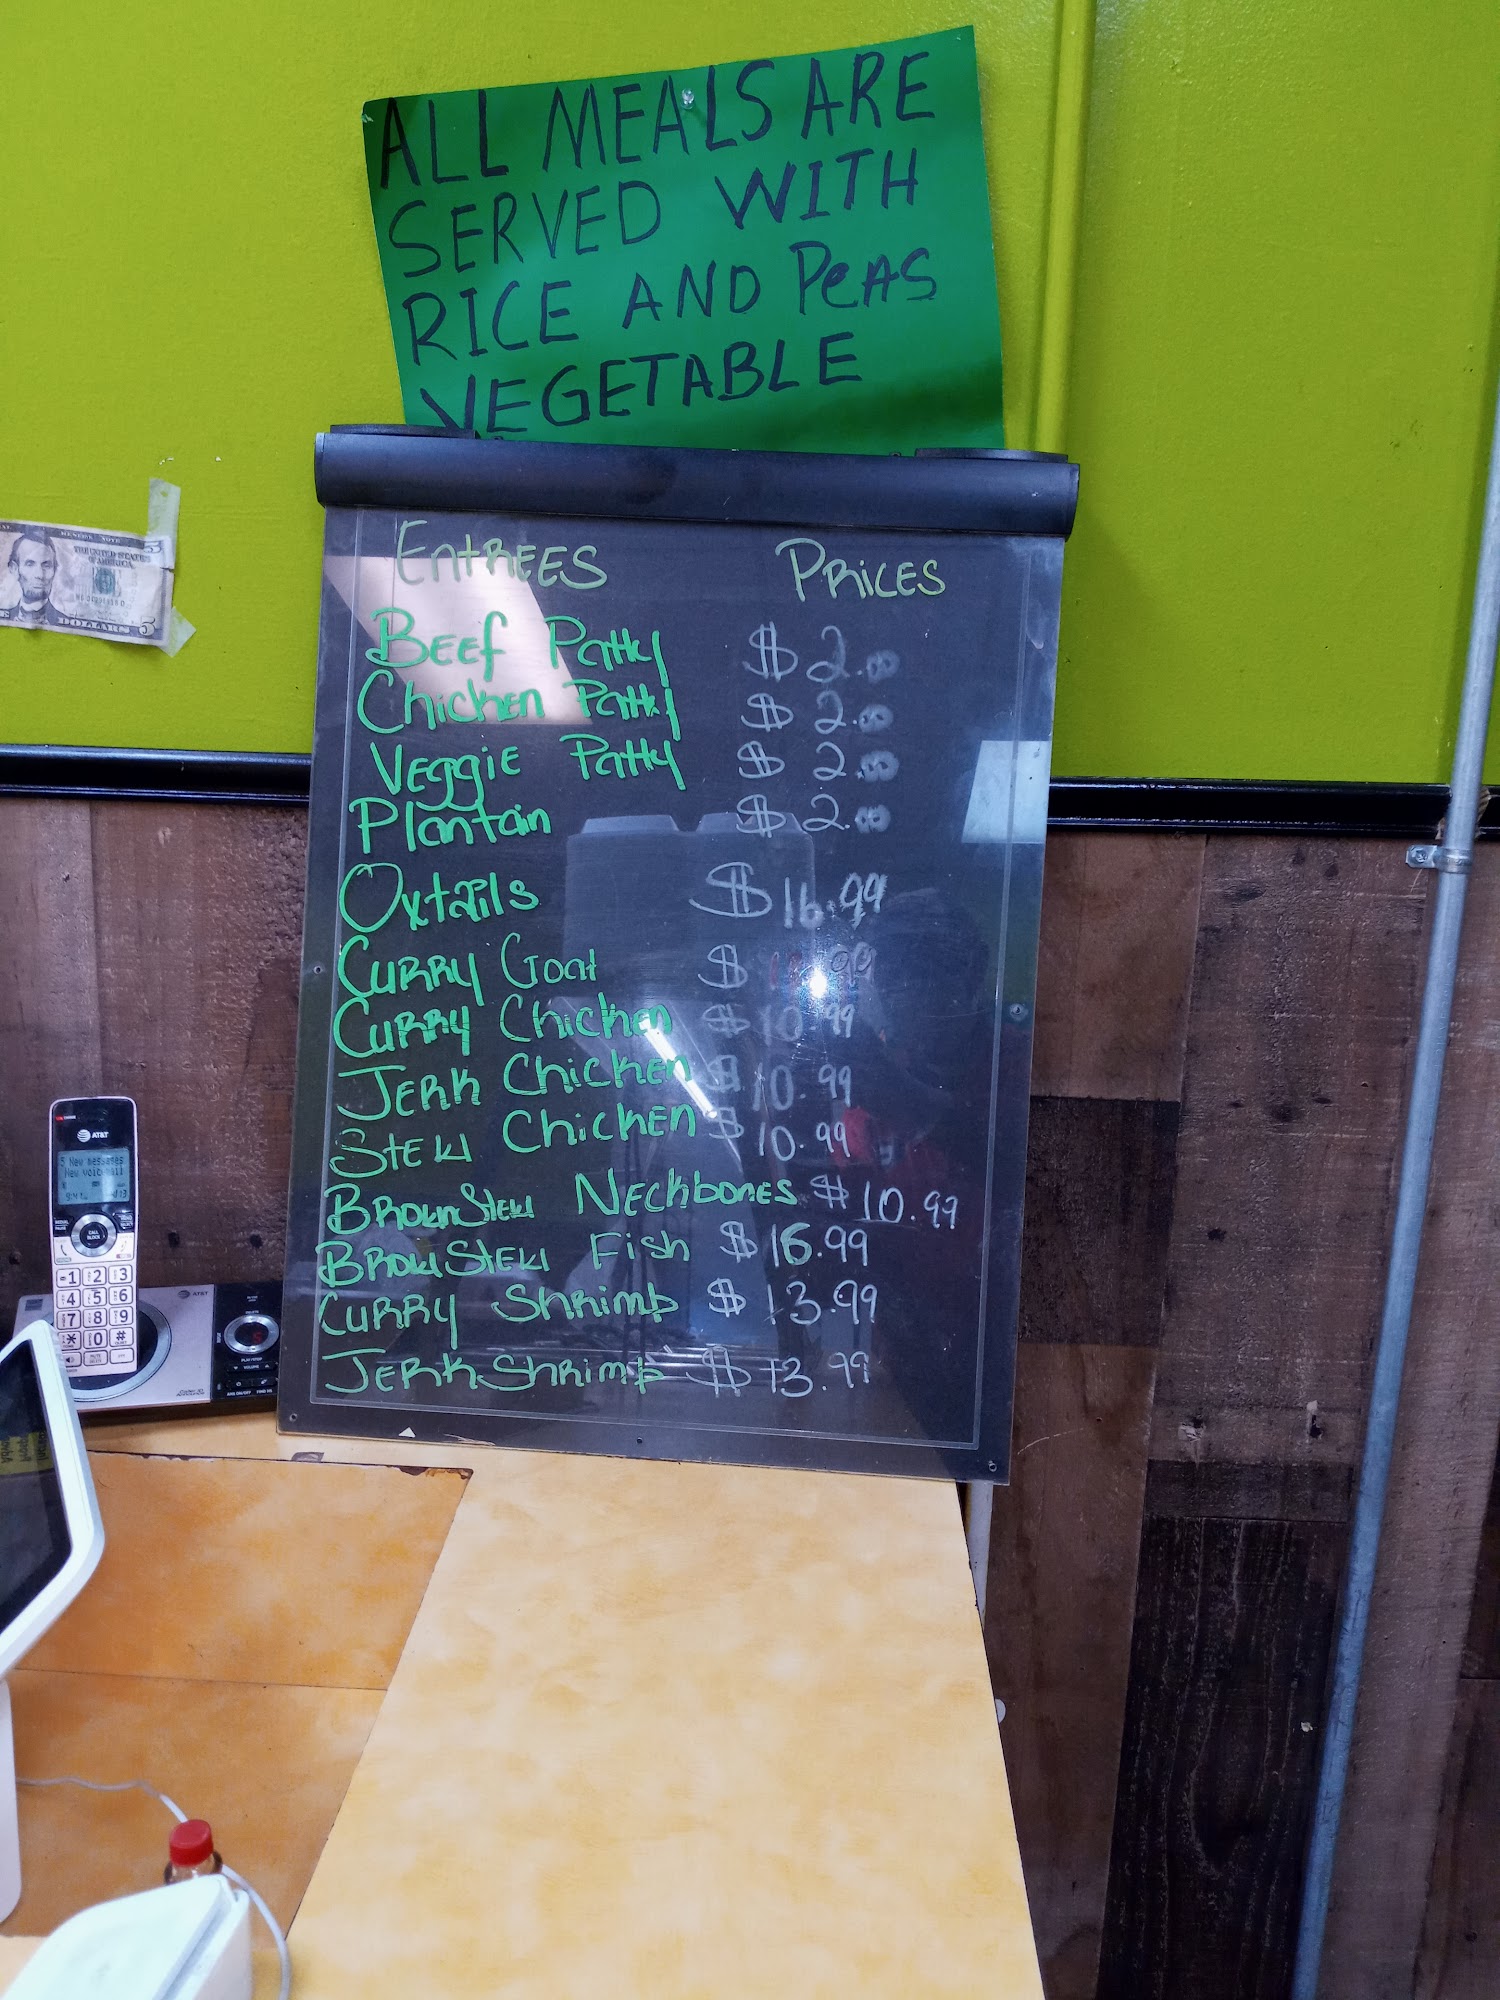 ALL MEALS ARE
SERVED WITH
RICE AND PeAS
VEGETABLE
ENtREES PRiCES
BEEf Patty $ 2.
Chicken Patty $ 2.
VEggiE Patty $ 2.
Plantain $ 2.
Oxtails $ 16.99
CURRY Goat $ .99
CURRY Chicken $ 10.99
JERK Chicken $ 10.99
StEW Chicken $ 10.99
BROWN StEW NECkbONES $ 10.99
BROWN StEW Fish $ 16.99
CURRY Shrimp $ 13.99
JERK Shrimp $ 13.99
THE UNITED STATES
OF AMERICA
DOLLARS 5
AT&T
5 New messages
1 2 3
4 5 6
7 8 9
* 0 #
AT&T